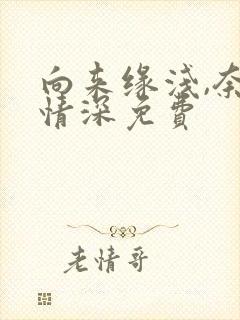 向来缘浅,奈
情深免費
老情哥